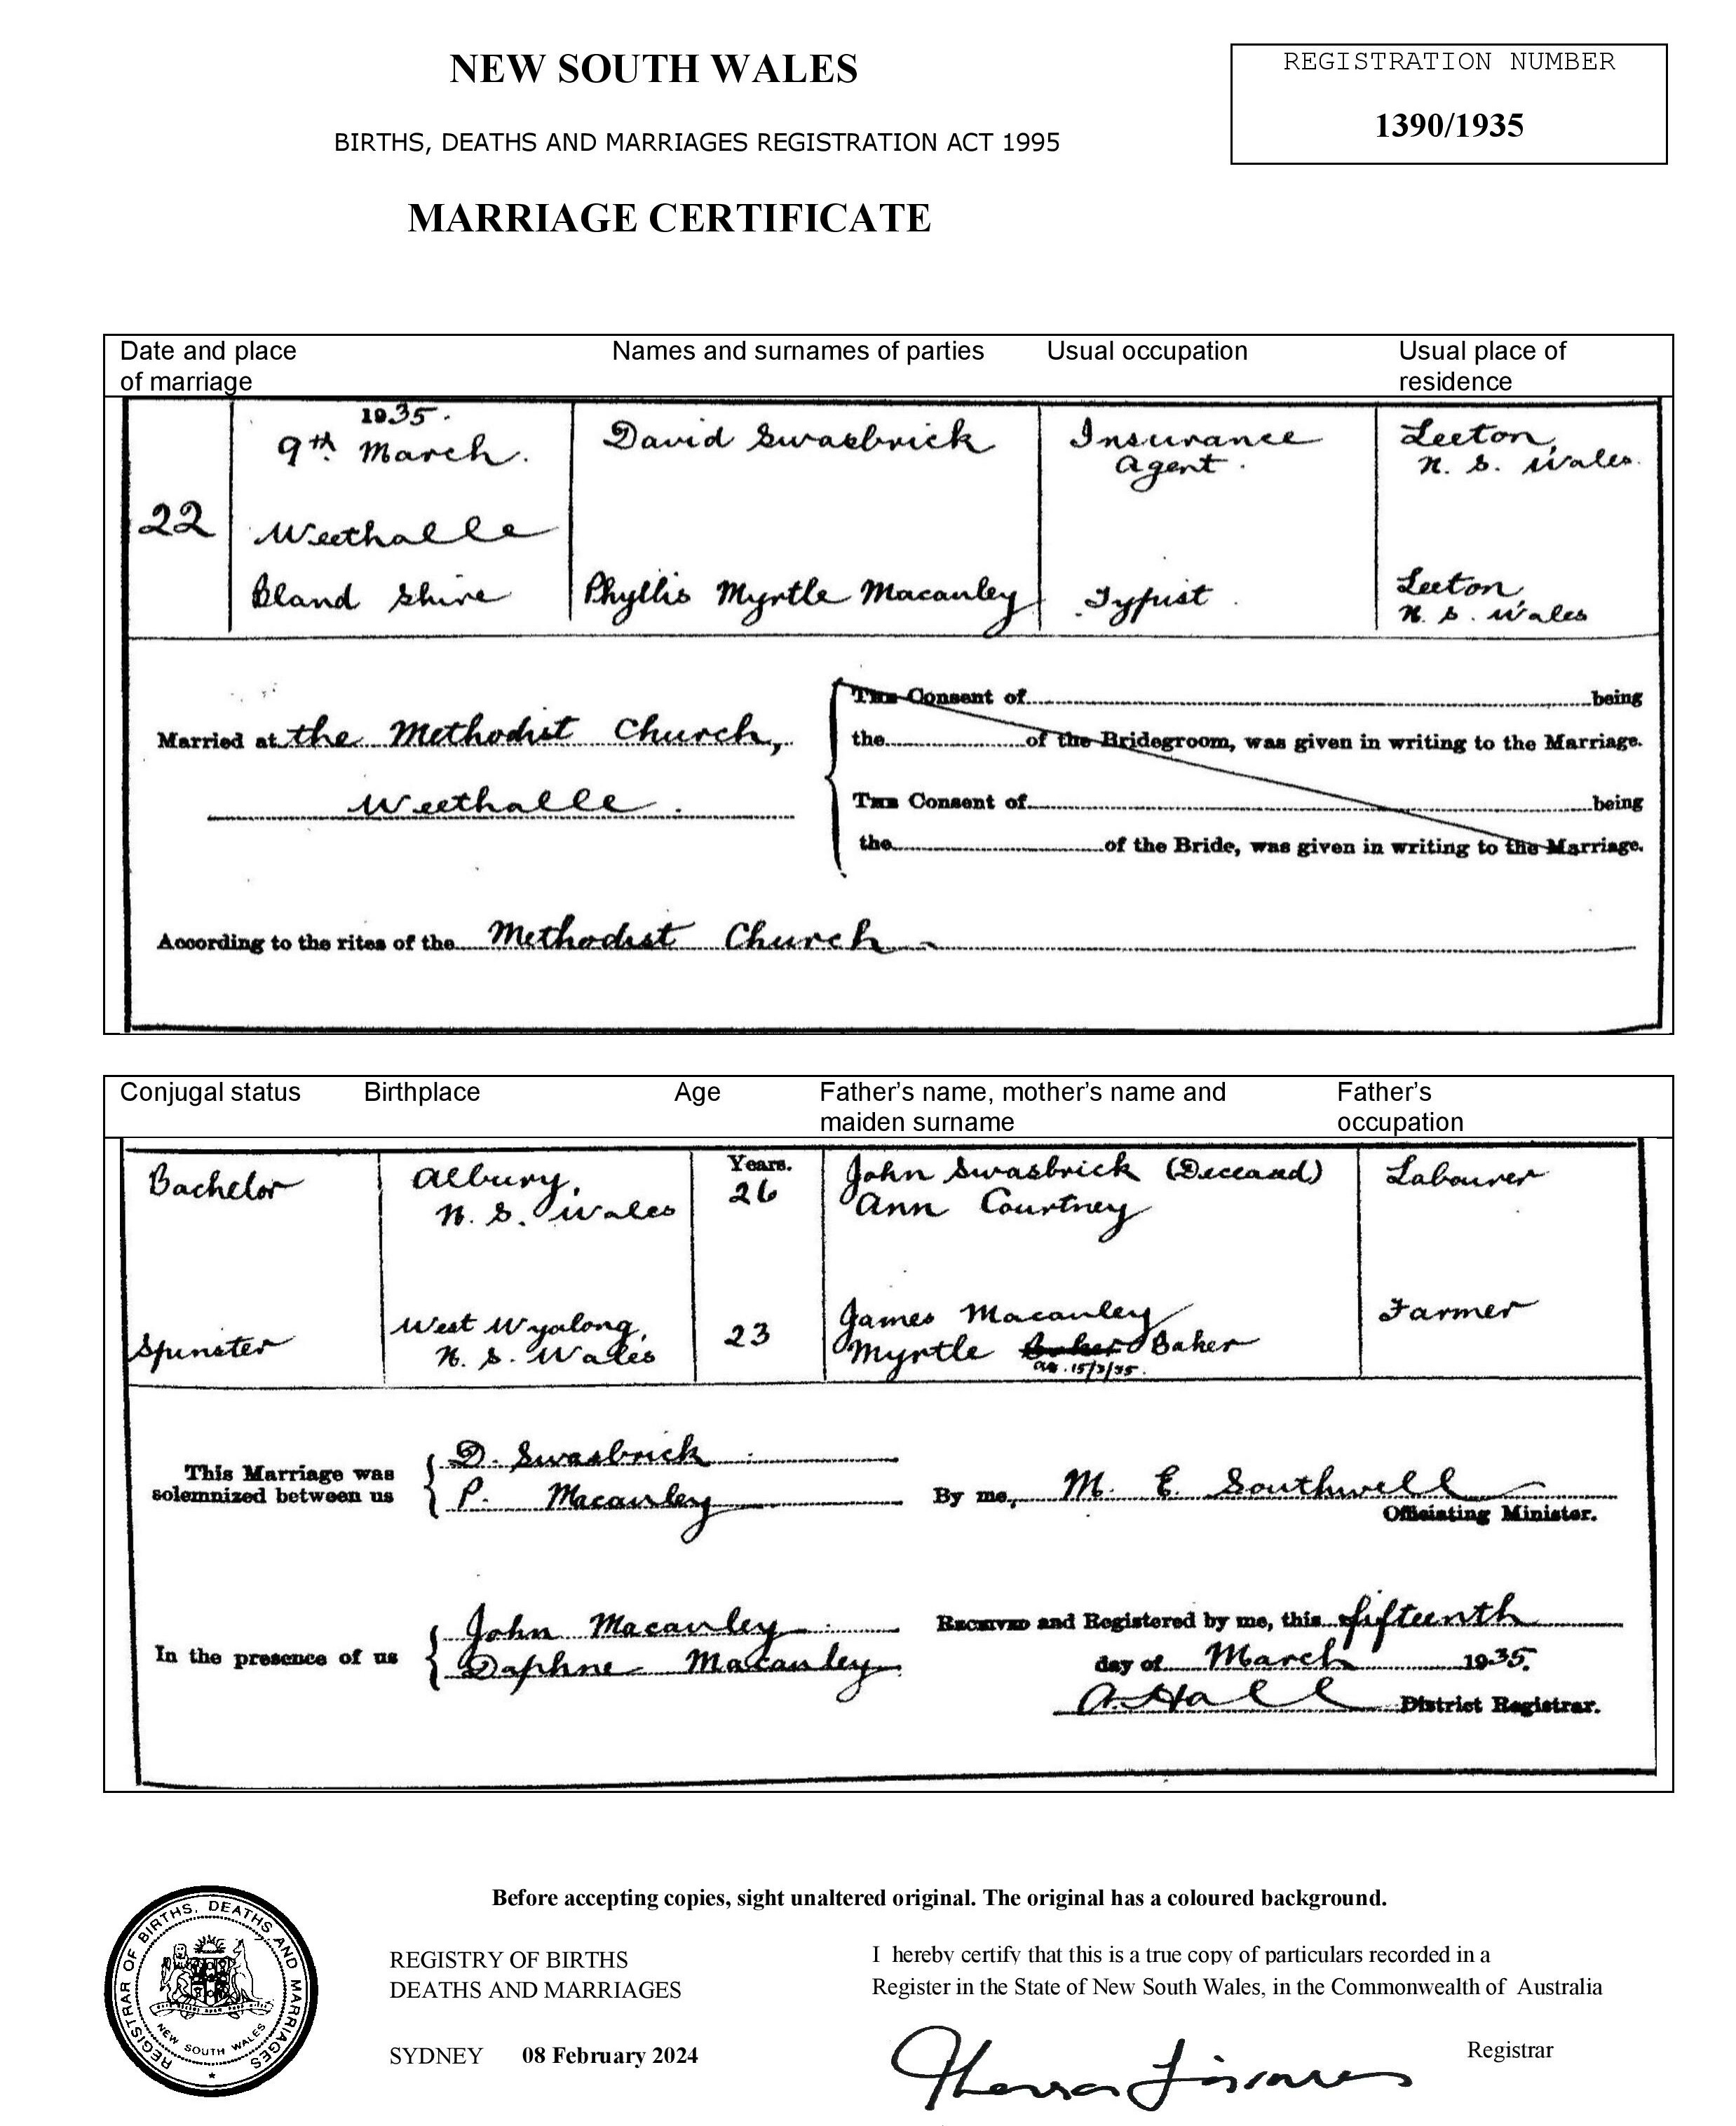 NEW SOUTH WALES
REGISTRATION NUMBER
1390/1935
BIRTHS, DEATHS AND MARRIAGES REGISTRATION ACT 1995
MARRIAGE CERTIFICATE
Date and place of marriage Names and surnames of parties Usual occupation Usual place of residence
1935.
9th March. David Swasbrick Insurance Agent. Leeton, N. S. Wales.
22
Weethalle
Bland Shire Phyllis Myrtle Macauley Typist. Leeton, N. S. Wales
Married at the Methodist Church,
Weethalle.
THE Consent of being
the of the Bridegroom, was given in writing to the Marriage.
THE Consent of being
the of the Bride, was given in writing to the Marriage.
According to the rites of the Methodist Church
Conjugal status Birthplace Age Father's name, mother's name and maiden surname Father's occupation
Years.
Bachelor Albury, N. S. Wales 26 John Swasbrick (Deceased) Ann Courtney Labourer
Spinster West Wyalong, N. S. Wales 23 James Macauley Myrtle Baker Farmer
15/3/35.
This Marriage was
solemnized between us
D. Swasbrick
P. Macauley
By me, M. E. Southwell
Officiating Minister.
In the presence of us
John Macauley
Daphne Macauley
RECEIVED and Registered by me, this fifteenth
day of March 1935.
A. Hall District Registrar.
Before accepting copies, sight unaltered original. The original has a coloured background.
REGISTRY OF BIRTHS
DEATHS AND MARRIAGES
SYDNEY 08 February 2024
I hereby certify that this is a true copy of particulars recorded in a
Register in the State of New South Wales, in the Commonwealth of Australia
Registrar
REGISTRAR OF BIRTHS, DEATHS AND MARRIAGES
NEW SOUTH WALES